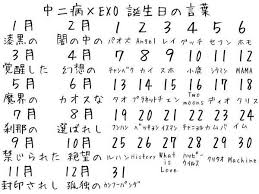 中二病×EXO 誕生日の言葉
1月 2月 1 2 3 4 5 6
漆黒の 闇の中の パオズ Angel レイ グッチ セフン ホモ
3月 4月 7 8 9 10 11 12
覚醒した 幻想の チャンバク カイ スホ 小鹿 シウミン MAMA
5月 6月 13 14 15 16 17 18
魔界の カオスな クオ プラネット チェン Two moons ディオ クリス
7月 8月 19 20 21 22 23 24
刹那の 選ばれし カイ イム
9月 10月 25 26 27 28 29 30
禁じられた 絶望の ルハン History What is Love Machine
11月 12月 31
封印されし 孤独の カンフーパンダ